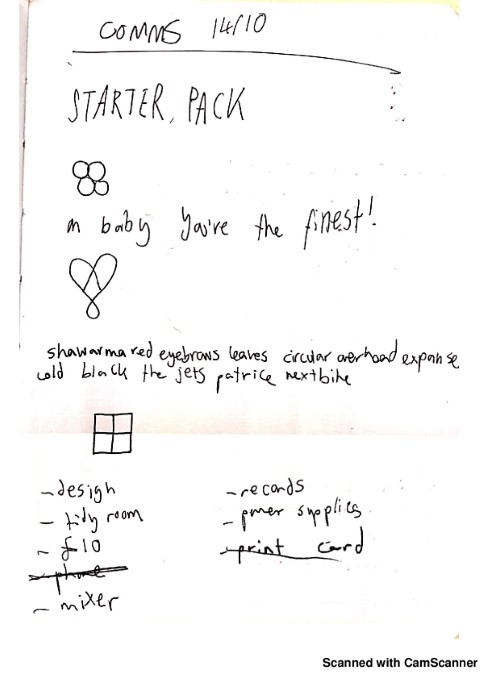 COMMS 14/10
STARTER, PACK
m baby you're the finest!
shawarma red eyebrows leaves circular overhead expanse
cold black the jets patrice nextbike
- design
- tidy room
- £10
- phone
- mixer
- records
- power supplies
- print card
Scanned with CamScanner